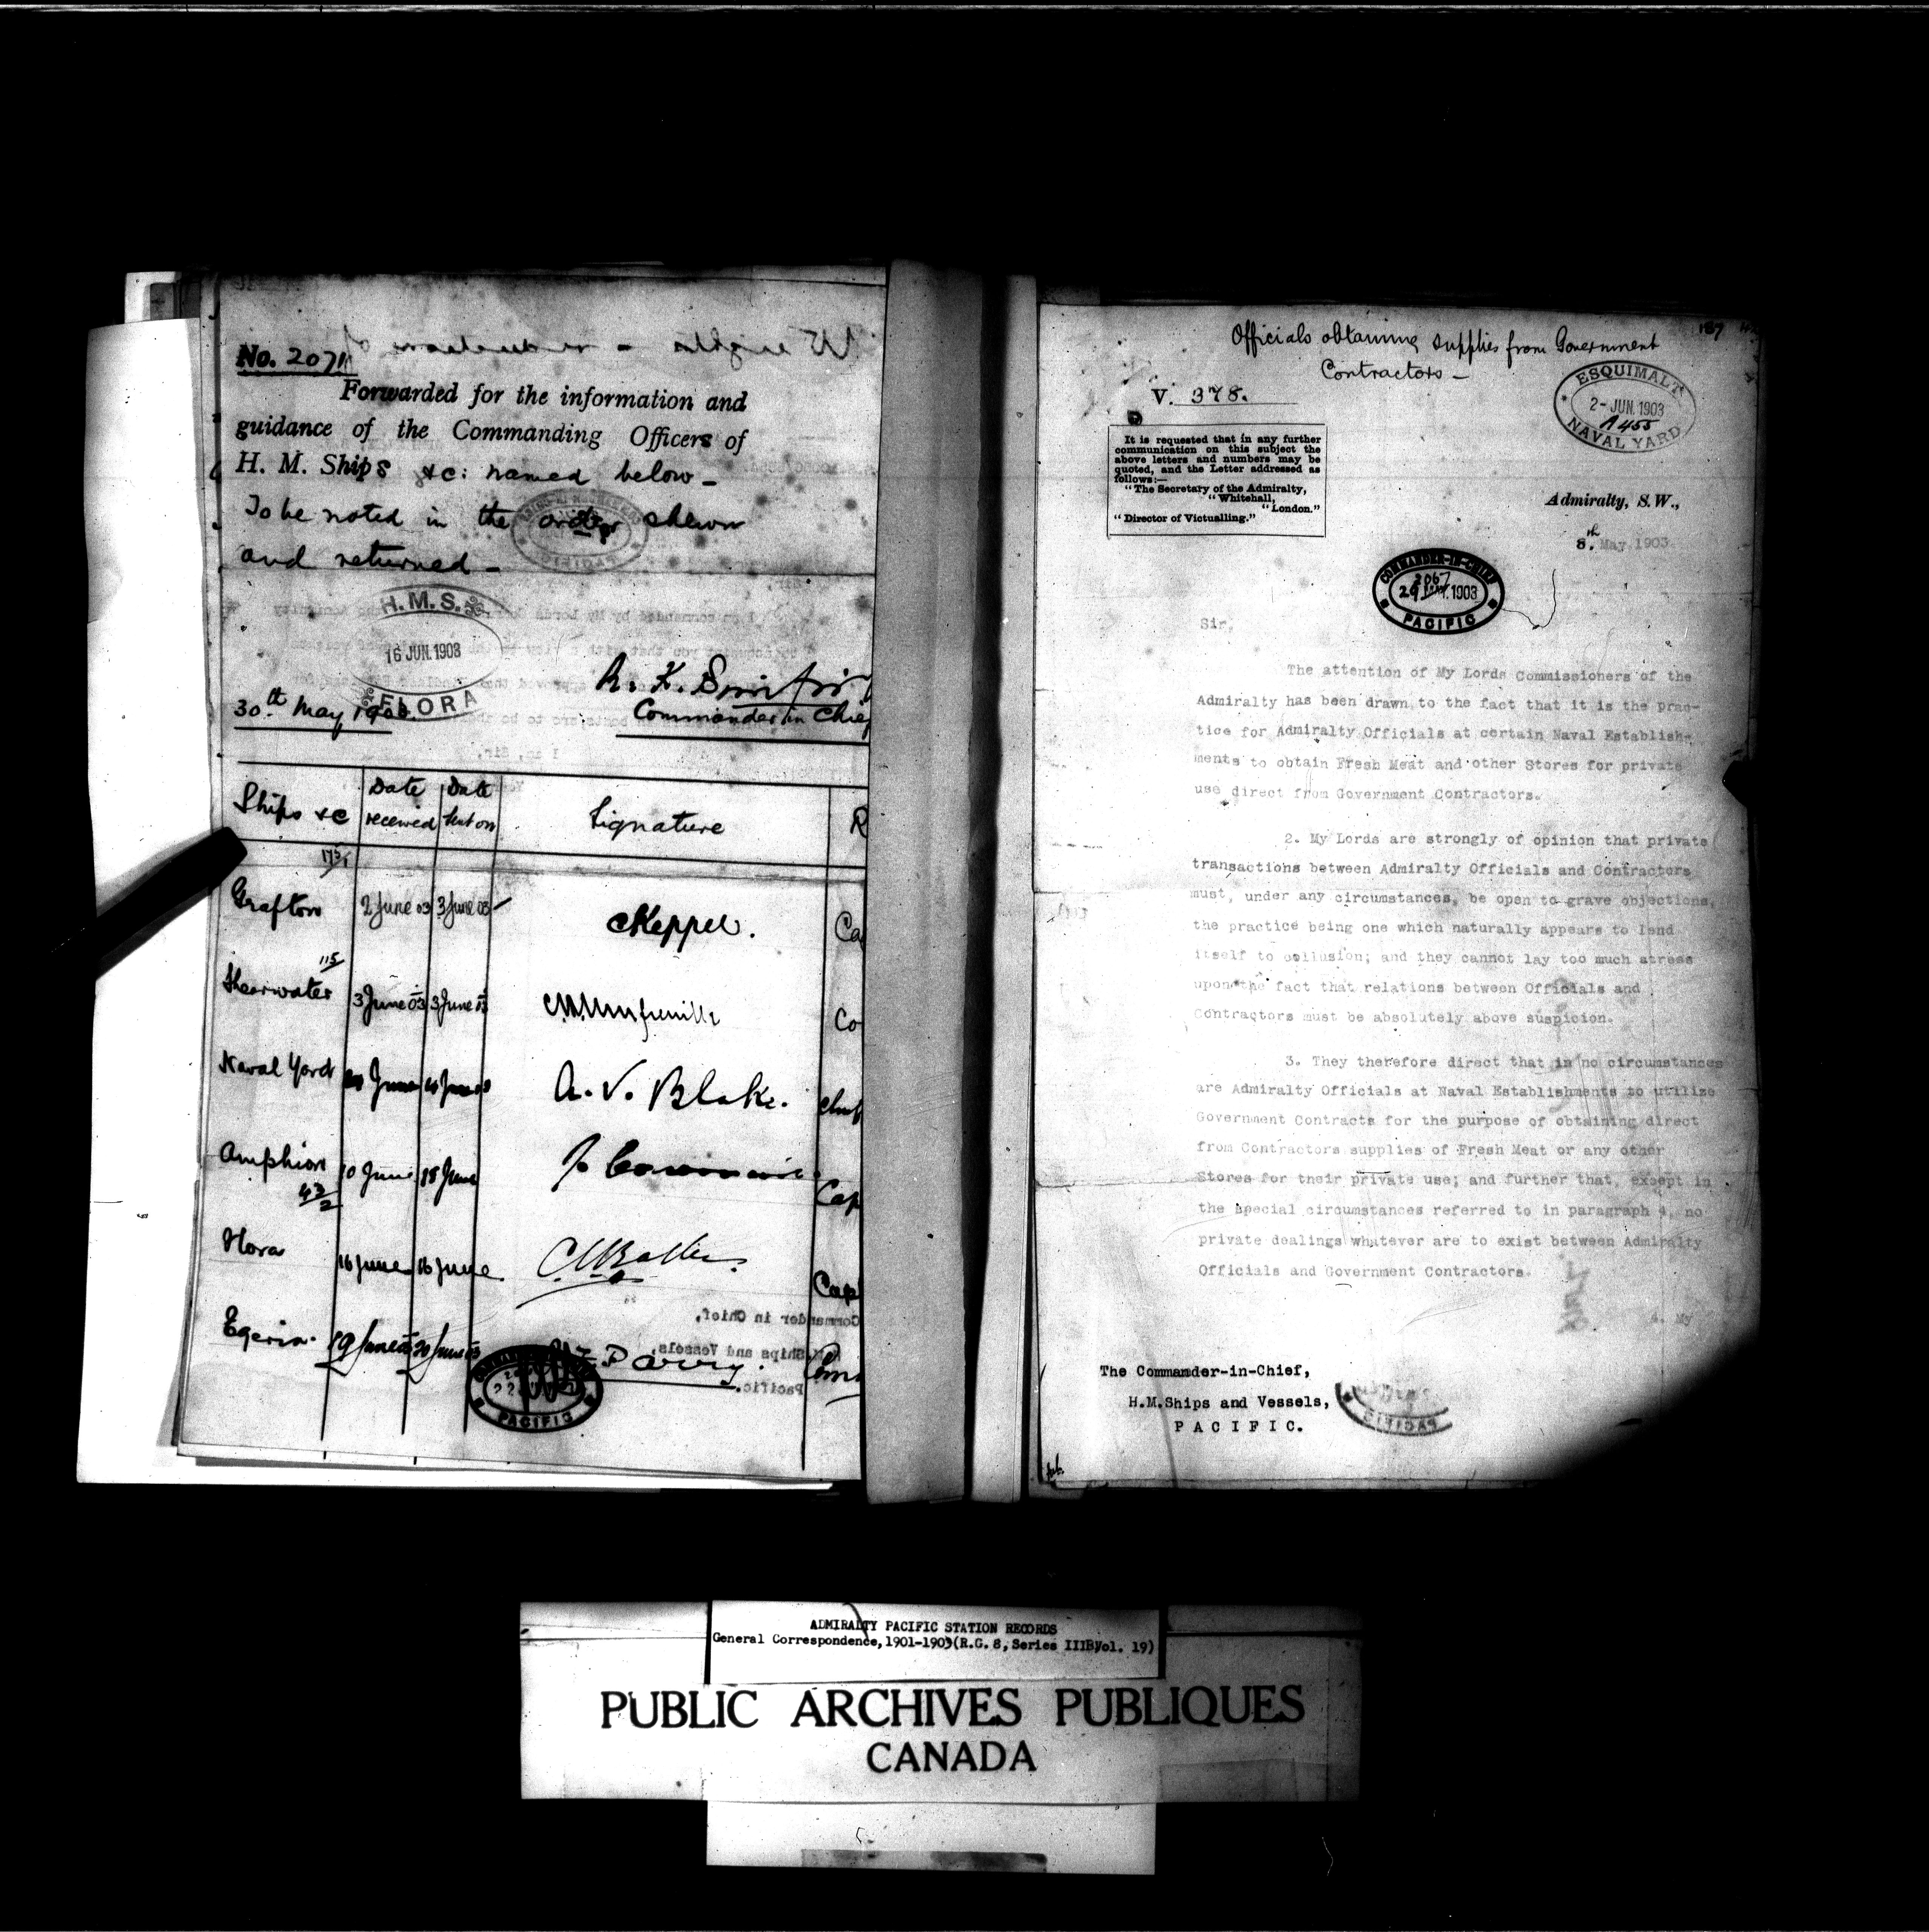 No. 2071
Forwarded for the information and
guidance of the Commanding Officers of
H. M. Ships &c: named below -
To be noted in the order shewn
and returned -
H.M.S.
16 JUN. 1903
FLORA
30th May 1903.
Commander in Chief
Ships &c
Date received
Date sent on
Signature
R
175/1
Grafton
2 June 03
3 June 03
CKeppel.
Ca
115/
Shearwater
3 June 03
3 June 03
Co
Naval Yard
June
June
A. V. Blake.
Amphion
10 June
18 June
Cap
Flora
16 June
16 June
Cap
Egeria.
19 June 03
20 June 03
Parry.
PACIFIC
Commander in Chief,
H.M. Ships and Vessels,
Pacific.
187
Officials obtaining supplies from Government
Contractors -
V. 378.
ESQUIMALT
2 - JUN. 1903
A 455
NAVAL YARD
It is requested that in any further
communication on this subject the
above letters and numbers may be
quoted, and the Letter addressed as
follows:—
"The Secretary of the Admiralty,
"Whitehall,
"London."
"Director of Victualling."
Admiralty, S.W.,
8th May 1903.
COMMANDER-IN-CHIEF
2067
29 MAY. 1903
PACIFIC
Sir,
The attention of My Lords Commissioners of the
Admiralty has been drawn to the fact that it is the prac-
tice for Admiralty Officials at certain Naval Establish-
ments to obtain Fresh Meat and other Stores for private
use direct from Government Contractors.
2. My Lords are strongly of opinion that private
transactions between Admiralty Officials and Contractors
must, under any circumstances, be open to grave objections,
the practice being one which naturally appears to lend
itself to collusion; and they cannot lay too much stress
upon the fact that relations between Officials and
Contractors must be absolutely above suspicion.
3. They therefore direct that in no circumstances
are Admiralty Officials at Naval Establishments to utilize
Government Contracts for the purpose of obtaining direct
from Contractors supplies of Fresh Meat or any other
Stores for their private use; and further that, except in
the special circumstances referred to in paragraph 4, no
private dealings whatever are to exist between Admiralty
Officials and Government Contractors.
4. My
The Commander-in-Chief,
H.M.Ships and Vessels,
PACIFIC.
ADMIRALTY PACIFIC STATION RECORDS
General Correspondence, 1901-1903 (R.G. 8, Series IIIB, Vol. 19)
PUBLIC ARCHIVES PUBLIQUES
CANADA